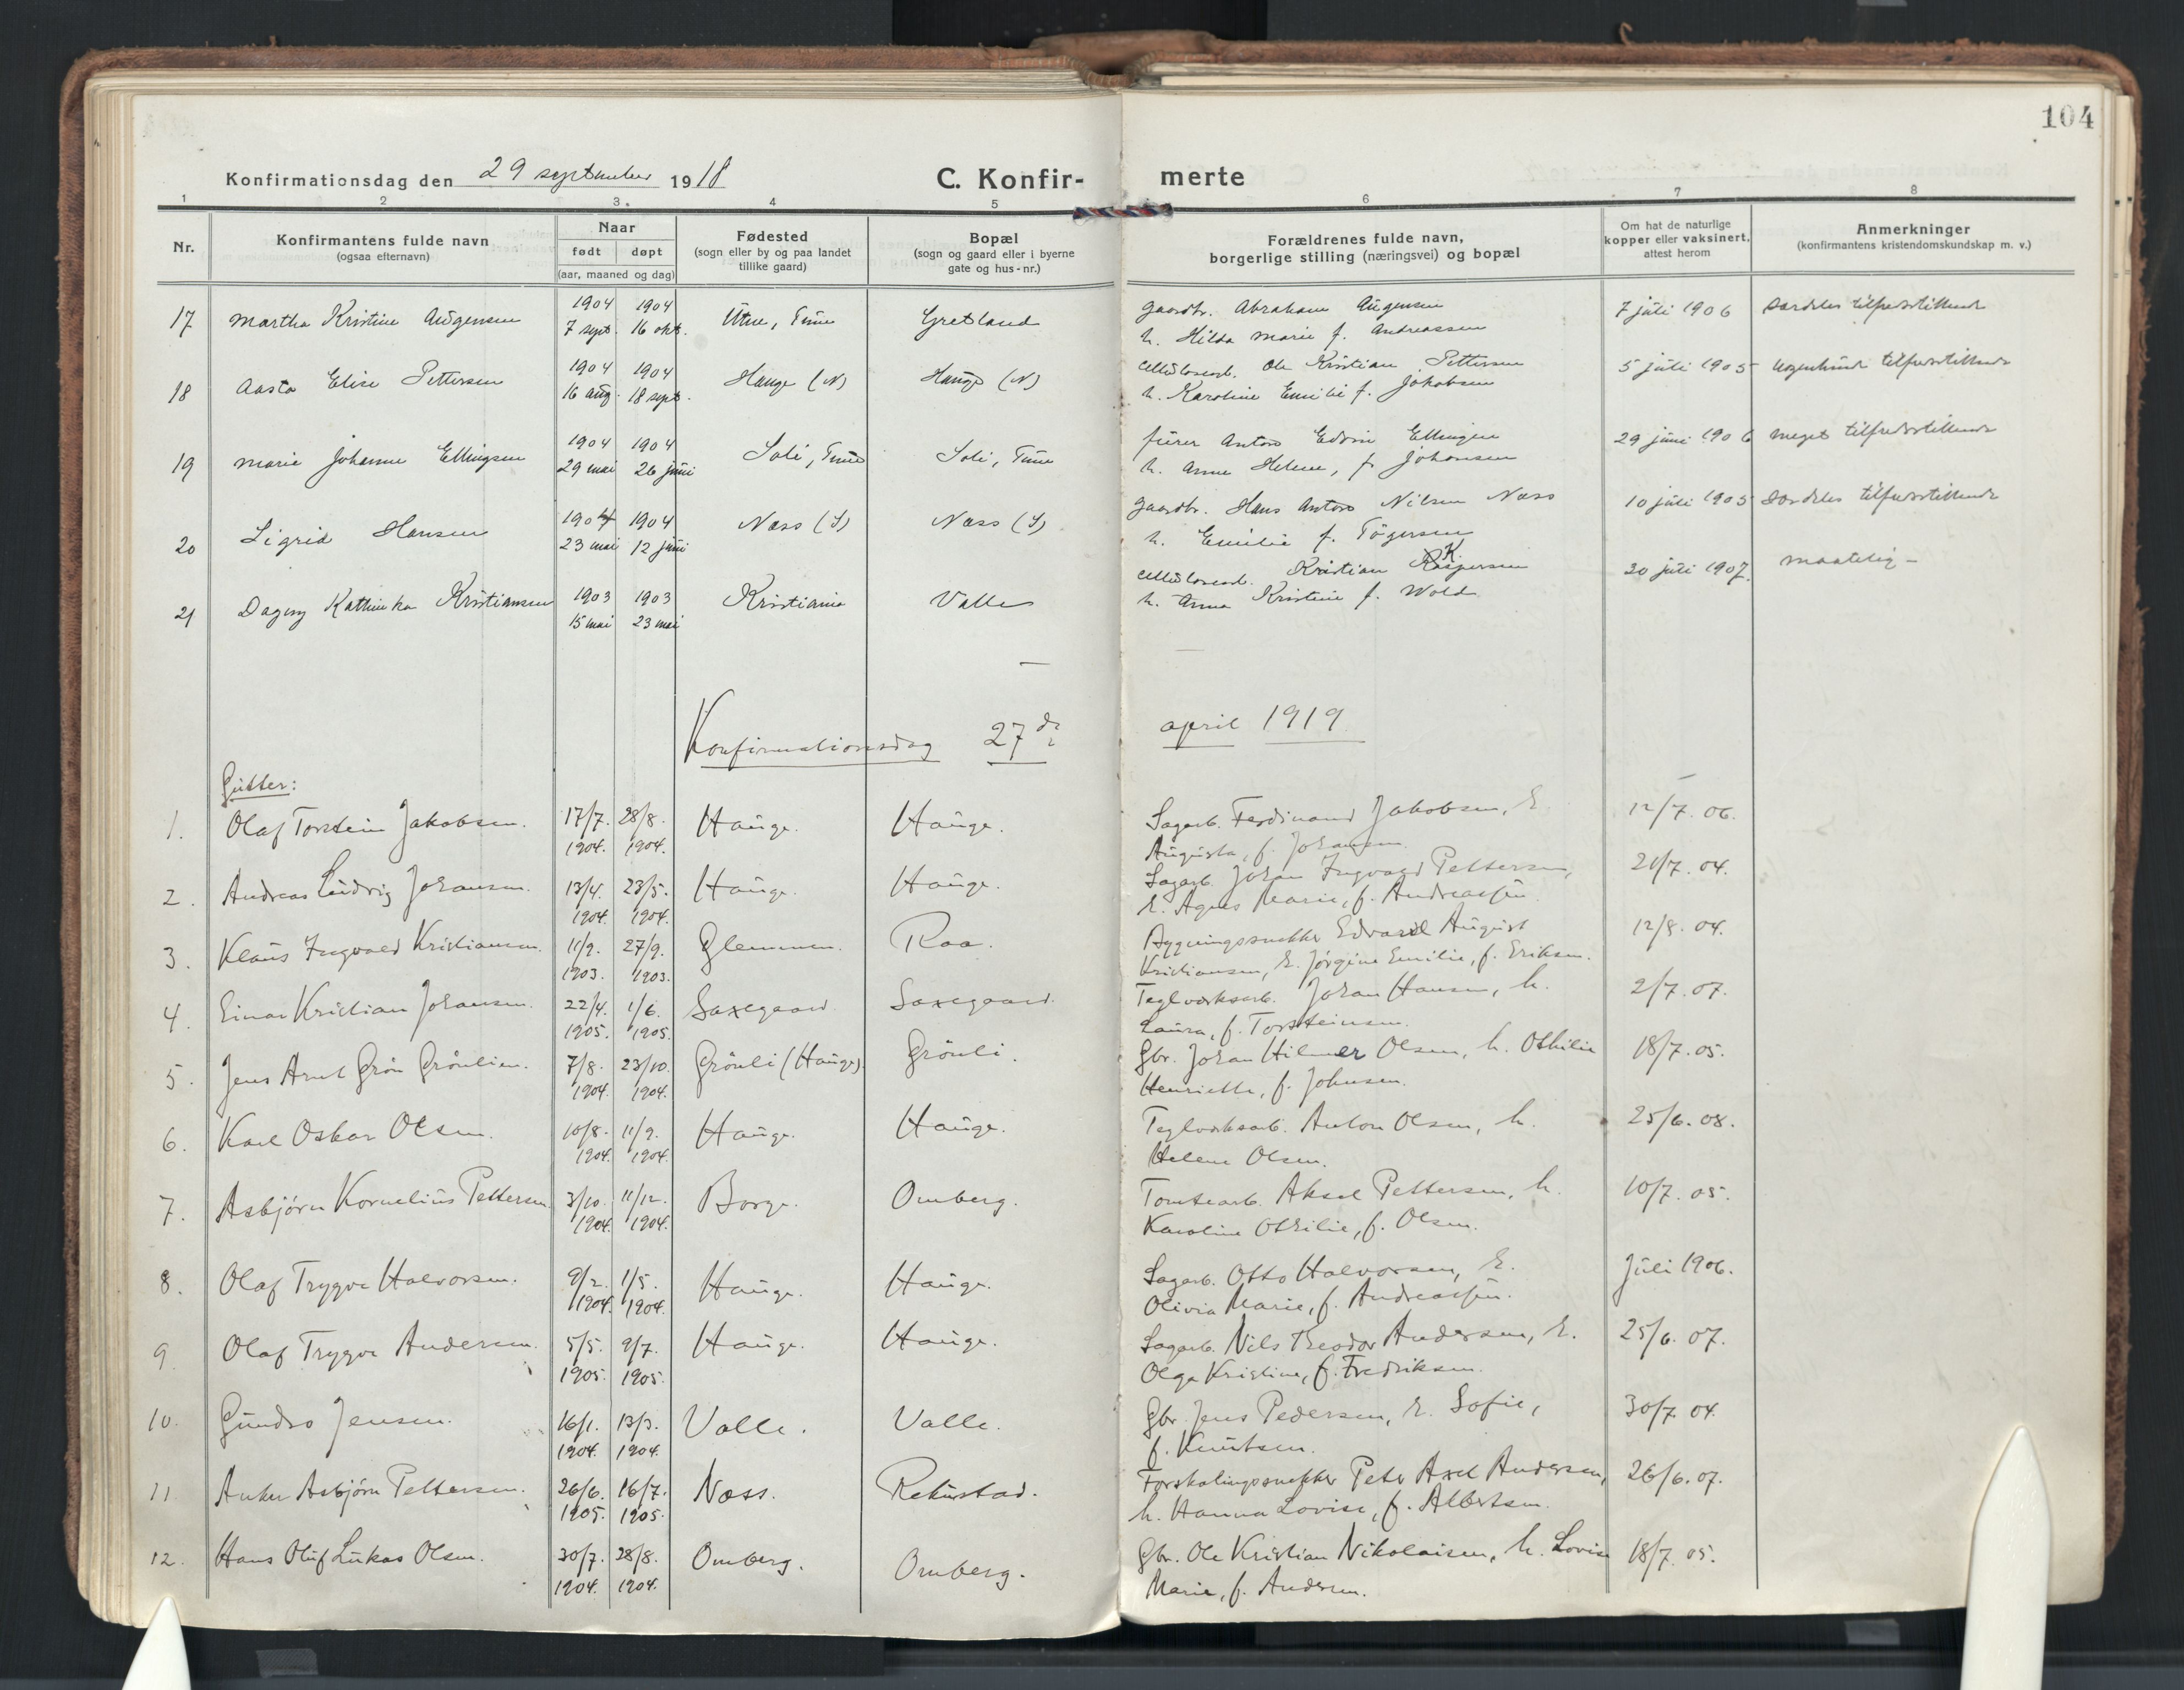 104
Konfirmationsdag den 29 september 1918
C. Konfir- merte
1 2 3. 4 5 6 7 8
Nr.
Konfirmantens fulde navn
(ogsaa efternavn)
Naar
født døpt
(aar, maaned og dag)
Fødested
(sogn eller by og paa landet
tillike gaard)
Bopæl
(sogn og gaard eller i byerne
gate og hus-nr.)
Forældrenes fulde navn,
borgerlige stilling (næringsvei) og bopæl
Om hat de naturlige
kopper eller vaksinert,
attest herom
Anmerkninger
(konfirmantens kristendomskundskap m. v.)
1904 1904 gaardbr. Abraham Augensen
17 Martha Kristine Augensen 7 sept. 16 okt. Utne, Tune Gretland 7 juli 1906 særdeles tilfredsstillende
h. Hilda Marie f. Andreassen
1904 1904 Ole Kristian Pettersen
18 Aasta Elise Pettersen 16 aug. 18 sept. Hauge (N) Hauge (N) 5 juli 1905 tilfredsstillende
h. Karoline Emilie f. Jakobsen
1904 1904 fürer Anton Edvin Ellingsen
19 Marie Johanne Ellingsen 29 mai 26 juni Soli, Tune Soli, Tune 29 juni 1906 meget tilfredsstillende
h. Anne Helene, f. Johansen
1904 1904 gaardbr. Hans Anton Nilsen Næss
20 Sigrid Hansen 23 mai 12 juni Næss (S) Næss (S) 10 juli 1905 særdeles tilfredsstillende
h. Emilie f. Tögersen
1903 1903 Kristian K.
21 Dagny Kathinka Kristiansen 15 mai 23 mai Kristiania Valle 20 juli 1907 maatelig –
h. Anna Kristine f. Wold
Konfirmationsdag 27de april 1919
Gutter:
1. Olaf Torstein Jakobsen. 17/7. 28/8. Hauge. Hauge. Sagarb. Ferdinand Jakobsen, h. 12/7. 06.
1904. 1904. Augusta, f. Johansen.
2. Andreas Ludvig Johansen. 13/4. 23/5. Hauge. Hauge. Sagarb. Johan Ingvald Pettersen, 21/7. 04.
1904. 1904. h. Agnes Marie, f. Andreassen
3. Klaus Ingvald Kristiansen. 11/9. 27/9. Glemmen. Raa. Bygningssnekker Edvard August 12/8. 04.
1903. 1903. Kristiansen, h. Jörgine Emilie, f. Eriksen.
4. Einar Kristian Johansen. 22/4. 1/6. Saxegaard Saxegaard. Teglværksarb. Johan Hansen, h. 2/7. 07.
1905. 1905. Laura, f. Torsteinsen.
5. Jens Arnt Grön Grönlien. 7/8. 23/10. Grönli (Hauge) Grönli. Gbr. Johan Hilmer Olsen, h. Othilie 18/7. 05.
1904. 1904. Henriette, f. Johnsen.
6. Karl Oskar Olsen. 10/8. 11/9. Hauge. Hauge. Teglværksarb. Anton Olsen, h. 25/6. 08.
1904. 1904. Helene Olsen.
7. Asbjörn Kornelius Pettersen 3/10. 11/12. Borge. Omberg. Tomtearb. Aksel Pettersen, h. 10/7. 05.
1904. 1904. Karoline Othilie, f. Olsen.
8. Olaf Trygve Halvorsen. 9/2. 1/5. Hauge. Hauge. Sagarb. Otto Halvorsen, h. Juli 1906.
1904. 1904. Olivia Marie, f. Andreassen.
9. Olaf Trygve Andersen. 5/5. 9/7. Hauge. Hauge. Sagarb. Nils Theodor Andersen, h. 25/6. 07.
1905. 1905. Olga Kristine, f. Fredriksen.
10. Gundro Jensen. 16/1. 13/3. Valle. Valle. Gbr. Jens Pedersen, h. Sofie, 30/7. 04.
1904. 1904. f. Knutsen.
11. Anker Asbjörn Pettersen. 26/6. 16/7. Næss. Rekustad. Forskalingssnekker Peter Axel Andersen, 26/6. 07.
1905. 1905. h. Hanna Lovise, f. Albertsen.
12. Hans Oluf Lukas Olsen. 30/7. 28/8. Omberg. Omberg. Gbr. Ole Kristian Nikolaisen, h. Lovise 18/7. 05.
1904. 1904. Marie, f. Andersen.